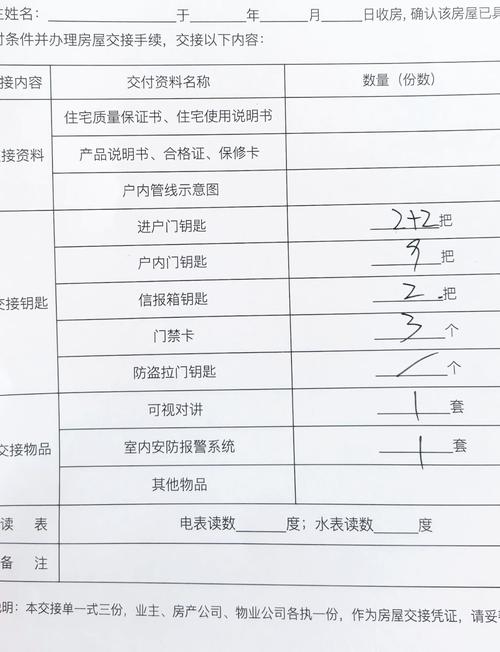 主姓名：______于____年____月____日收房,确认该房屋已具
付条件并办理房屋交接手续，交接以下内容：
接内容 交付资料名称 数量（份数）
接资料 住宅质量保证书、住宅使用说明书
产品说明书、合格证、保修卡
户内管线示意图
交接钥匙 进户门钥匙 2+2把
户内门钥匙 9把
信报箱钥匙 2把
门禁卡 3个
防盗拉门钥匙 /个
交接物品 可视对讲 1套
室内安防报警系统 1套
其他物品
读 表 电表读数______度；水表读数______度
备 注
说明：本交接单一式三份，业主、房产公司、物业公司各执一份，作为房屋交接凭证，请妥